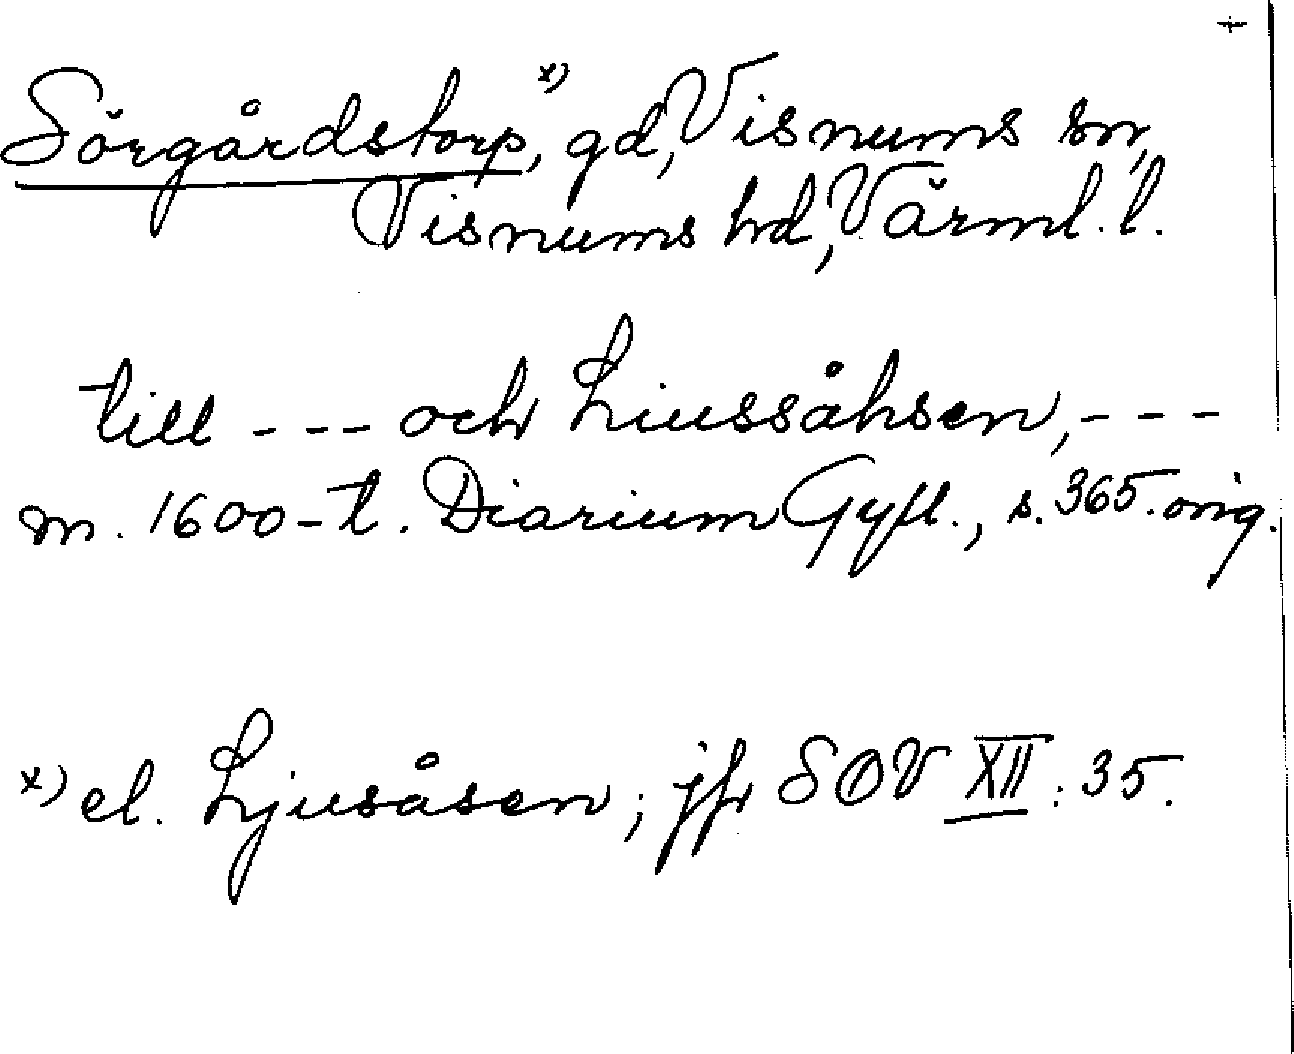 Sörgårdstorp,ˣ⁾ gd, Visnums sn,
Visnums hd, Värml. l.
till --- och Liussåhsen, ---
m. 1600-t. Diarium Gyll., s. 365. orig.
x) el. Ljusåsen; jfr SOV XII: 35.